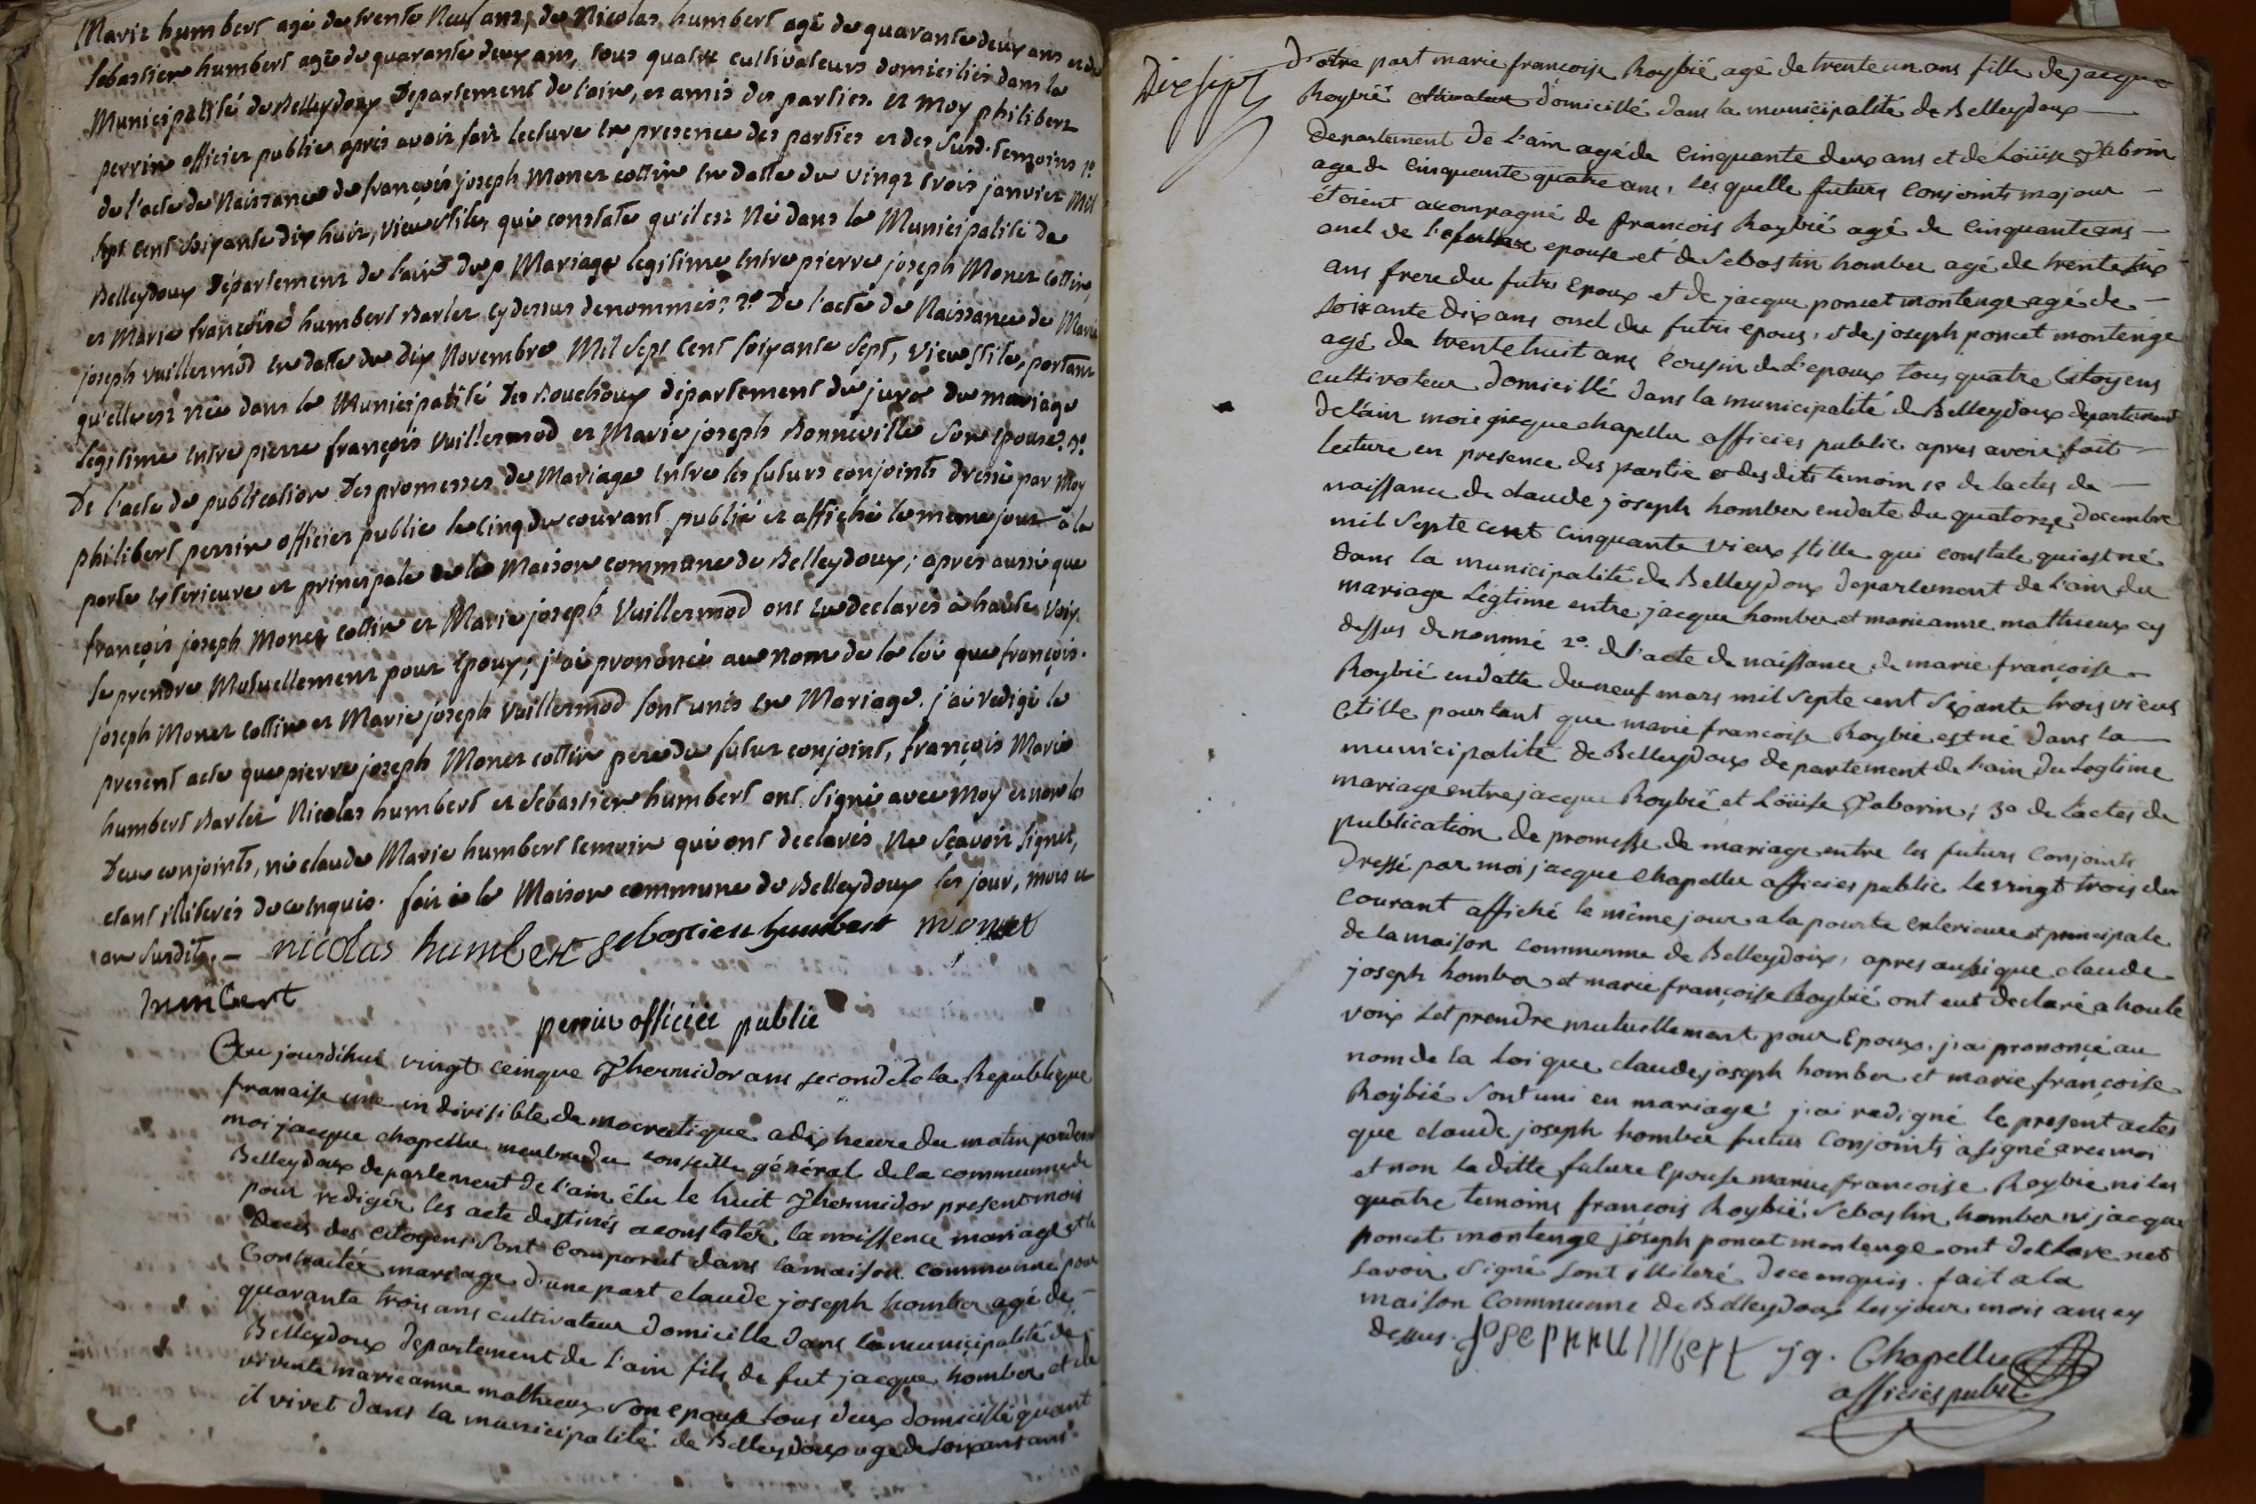 Marie humbert agé de trente Neuf ans, de Nicolas humbert agé de quarante deux ans et de
Sebastien humbert agé de quarante deux ans, tous quatre cultivateurs domiciliés dans la
Municipalité de Belleydoux Departement de l'ain, et amis des parties. et moy philibert
perrin officier public après avoir fait lecture en presence des parties et des susd. temoins 1º.
de l'acte de Naissance de françois joseph Monet cottin en datte du vingt trois janvier Mil
sept cent soixante dix huit, vieu stile, qui constate qu'il est Né dans la Municipalité de
Belleydoux Département de l'ain du p Mariage legitime entre pierre joseph Monet Cottin,
et Marie françoise humbert Barlet cy dessus denommés: 2º De l'acte de Naissance de Marie
joseph vuillermod en datte du dix Novembre Mil Sept Cent soixante Sept, vieu stile, portant
qu'elle est née dans la Municipalité Des Bouchoux département du jura du mariage
legitime entre pierre françois Vuillermod et Marie joseph Bonneville son epouse. 3º.
De l'acte de publication Des promesses de Mariage entre les futurs conjoints dressé par Moy
philibert perrin officier public le cinq du courant publié et affiché le meme jour à la
porte exterieure et principale de la Maison commune de Belleydoux; après aussi que
françois joseph Monet cottin et Marie joseph Vuillermod ont eu declarés à haute voix
se prendre Mutuellement pour Epoux; j'ai prononcé au nom de la loi que françois.
joseph Monet Cottin et Marie joseph Vuillermod sont unis en Mariage. j'ai redigé le
present acte que pierre joseph Monet cottin pere du futur conjoint, françois Marie
humbert Barlet Nicolas humbert et Sebastien humbert ont signé avec Moy et non les
Deux conjoints, ni claude Marie humbert temoin qui ont declarés Ne sçavoir signer,
etant illiterés de ce enquis. fait à la Maison commune de Belleydoux les jour, mois et
an susdits. — nicolas humbert sebostien humbert monet
humbert
perrin officier public
Au jourdihui vingt ceinque Thermidor ans second de la Republique
franaise une indivisible democratique a dix heure du matin pardevant
moi jacque chapellu menbre du conseille général de la commune de
Belleydoux departement de l'ain élu le huit Thermidor present mois
pour redigér les acte destinés a constatér la naissence mariage et le
deces des citoyens sont comparut dans la maison commune pour
Contractér mariage d'une part claude joseph homber agé de —
quarante trois ans cultivateur domicille dans la municipalité de
Belleydoux departement de l'ain fils de fut jacque homber et de
vivente marie anne mathieux son epouse tous deux domicillé quant
il vivet dans la municipalité de Belleydoux age de soixant ans
Dix sept
D'otre part marie françoise Roybié agé de trente un ans fille de jacque
Roybié cultivateur domicillé dans la municipalité de Belleydoux —
departement de l'ain agé de Cinquante deux ans et de Loüise Taborin
age de cinquante quatre ans, les quelle futurs conjoints majour —
étoient acompagné de françois Roybié agé de Cinquante ans —
oncl de l'a future epouse et de Sebostin homber agé de trente six
ans frere du futur epoux et de jacque poncet montenge agé de —
soixante dix ans oncl du futur epous, et de joseph poncet montenge
agé de trente huit ans cousin de l'epoux tous quatre Citoyens
cultivateur domicillé dans la municipalité de Belleydoux departement
de l'ain moi jacque chapellu officies public apres avoir fait —
lecture en presence des partie et des dits temoin 1º de lactes de —
naissance de claude joseph homber en date du quatorze decembre
mil septe cent cinquante vieux stille qui constate qui est né
dans la municipalité de Belleydoux departement de l'ain du
mariage Légtime entre jacque homber et marie anne mathieux cy
dessus denommé 2º. de l'acte de naissance de marie françoise
Roybié en datte du neuf mars mil septe cent sixante trois vieus
stille pourtant que marie francoise Roybié est né dans la —
municipalité de Belleydoux departement de l'ain du legtime
mariage entre jacque Roybié et Loüise Taborin; 3º de l'actes de
publication de promesse de mariage entre les futurs Conjoints
dressé par moi jacque chapellu officies public le vingt trois du
courant affiché le même jour a la pourte exterieure et principale
de la maison commune de Belleydoux, apres aussi que claude
joseph homber et marie françoise Roybié ont eut declaré a houte
voix set prendre mutuellement pour Epoux. j'ai prononcé au
nom de la Loi que claude joseph homber et marie françoise
Roybié sont uni en mariage! j'ai redigné le present actes
que claude joseph homber futur Conjoints a signé avec moi
et non la ditte future Epouse marie francoise Roybié ni les
quatre temoins françois Roybié Sebostin homber ni jacque
poncet montenge joseph poncet montenge ont declare net
savoir signé sont illiteré de ce enquis. fait a la
maison Commune de Belleydoux les jour mois ans cy
dessus. Joseph humbert jq. Chapellu
officies public